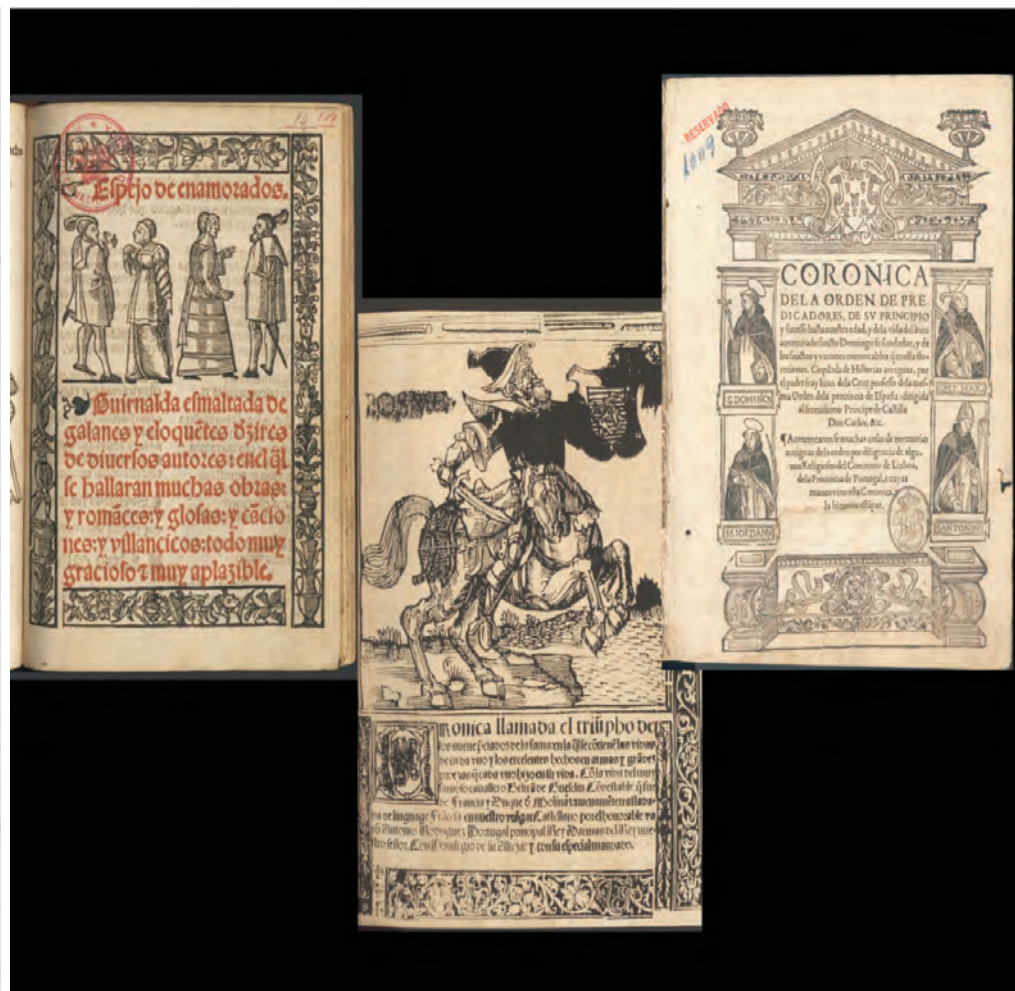 14 
Espejo de enamorados.
Guirnalda esmaltada de
galanes y eloquẽtes dezires
de diuersos autores: enel ql̃
se hallaran muchas obras:
y romãces: y glosas: y cãcio
nes: y villancicos: todo muy
gracioso ⁊ muy aplazible.
ronica llamada el triũpho de
los nueue p̃ciados de la fama: en la q̃l se cõtienẽ las vidas
de cada vno y los excelentes hechos en armas y grãdes
proezas q̃ cada vno hizo en su vida. Cõ la vida del muy
famoso cauallero Beltrã de Guesclin Cõdestable q̃ fue
de Francia y Duque d̃ Molina: nueuamẽte traslada
da de lenguage Frãces en nuestro vulgar Castellano por el honorable va
rõ Antonio Rodriguez Portugal principal Rey Darmas del Rey nue
stro señor. Con Preuilegio de su Alteza: y con su especial mandado.
RESERVADO
1009
CORONICA
DELA ORDEN DE PRE-
DICADORES, DE SV PRINCIPIO
y sucesso hasta nuestra edad, y dela vida del bien
auenturado sancto Domingo su fundador, y de
los sanctos y varones memorables q̃ en ella flo-
recieron. Copilada de Historias antiguas, por
el padre fray Iuan dela Cruz professo dela mes-
ma Orden dela prouincia de España: dirigida
al serenissimo Principe de Castilla
Don Carlos, &c.
¶ Acrecentaron se muchas cosas de memorias
antiguas de la orden por diligencia de algu-
nos Religiosos del Conuento de Lisboa,
dela Prouincia de Portugal, a cuyas
manos vino esta Coronica,
la hizieron estãpar.
S. DOMINGO
M. IORDANꝰ
S. ANTONIN